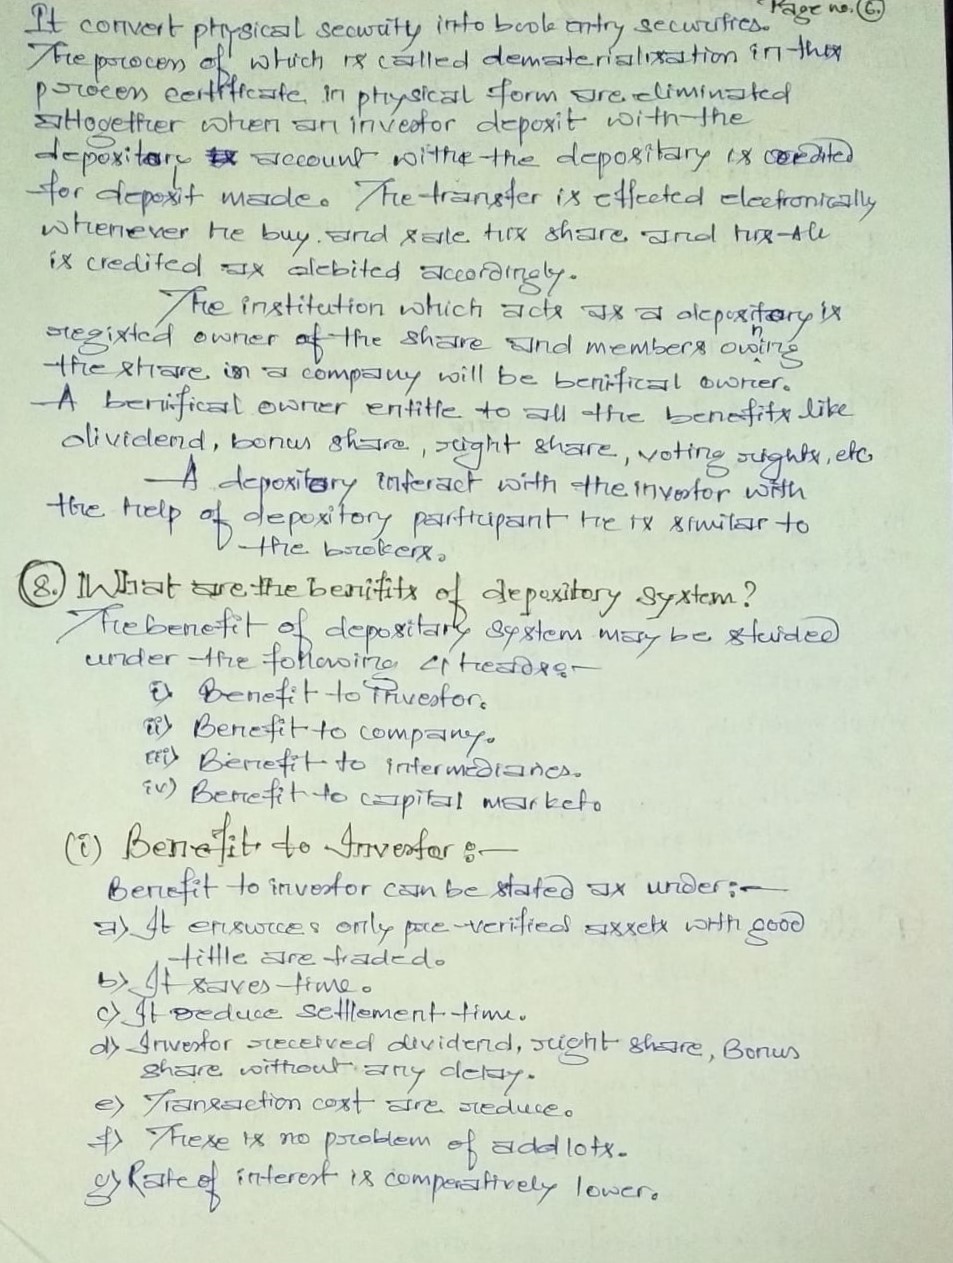 Page no. 6.
It convert physical security into book entry securities.
The process of which is called dematerialisation in this
process certificate in physical form are eliminated
altogether when an investor deposit with the
depository account withe the depositary is credited
for deposit made. The transfer is effected electronically
whenever he buy and sale his share and his A/c
is credited as debited accordingly.
The institution which acts as a depository is
registed owner of the share and members owning
the share in a company will be benifical owner.
A benifical owner entitle to all the benefits like
dividend, bonus share, right share, voting rights, etc
A depository interact with the investor with
the help of depository participant he is similar to
the brokers.
8. What are the benifits of depository system?
The benefit of depositary system may be studed
under the following 4 heads:-
i) Benefit to investor.
ii) Benefit to company.
iii) Benefit to intermediaries.
iv) Benefit to capital market.
(i) Benefit to Investor :-
Benefit to investor can be stated as under:-
a) It ensures only pre-verified assets with good
tittle are traded.
b) It saves time.
c) It reduce settlement time.
d) Investor received dividend, right share, Bonus
share without any delay.
e) Transaction cost are reduce.
f) These is no problem of add lots.
g) Rate of interest is comperatively lower.